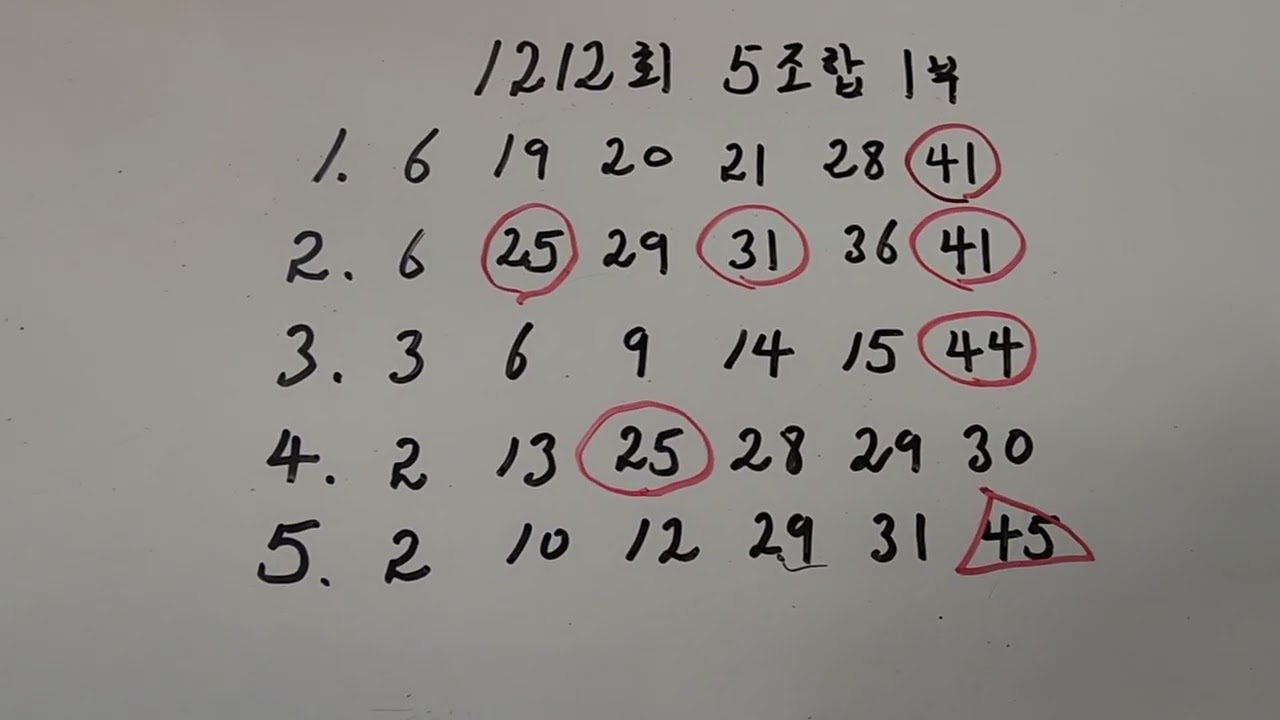 1212회 5조합 1부
1. 6 19 20 21 28 41
2. 6 25 29 31 36 41
3. 3 6 9 14 15 44
4. 2 13 25 28 29 30
5. 2 10 12 29 31 45